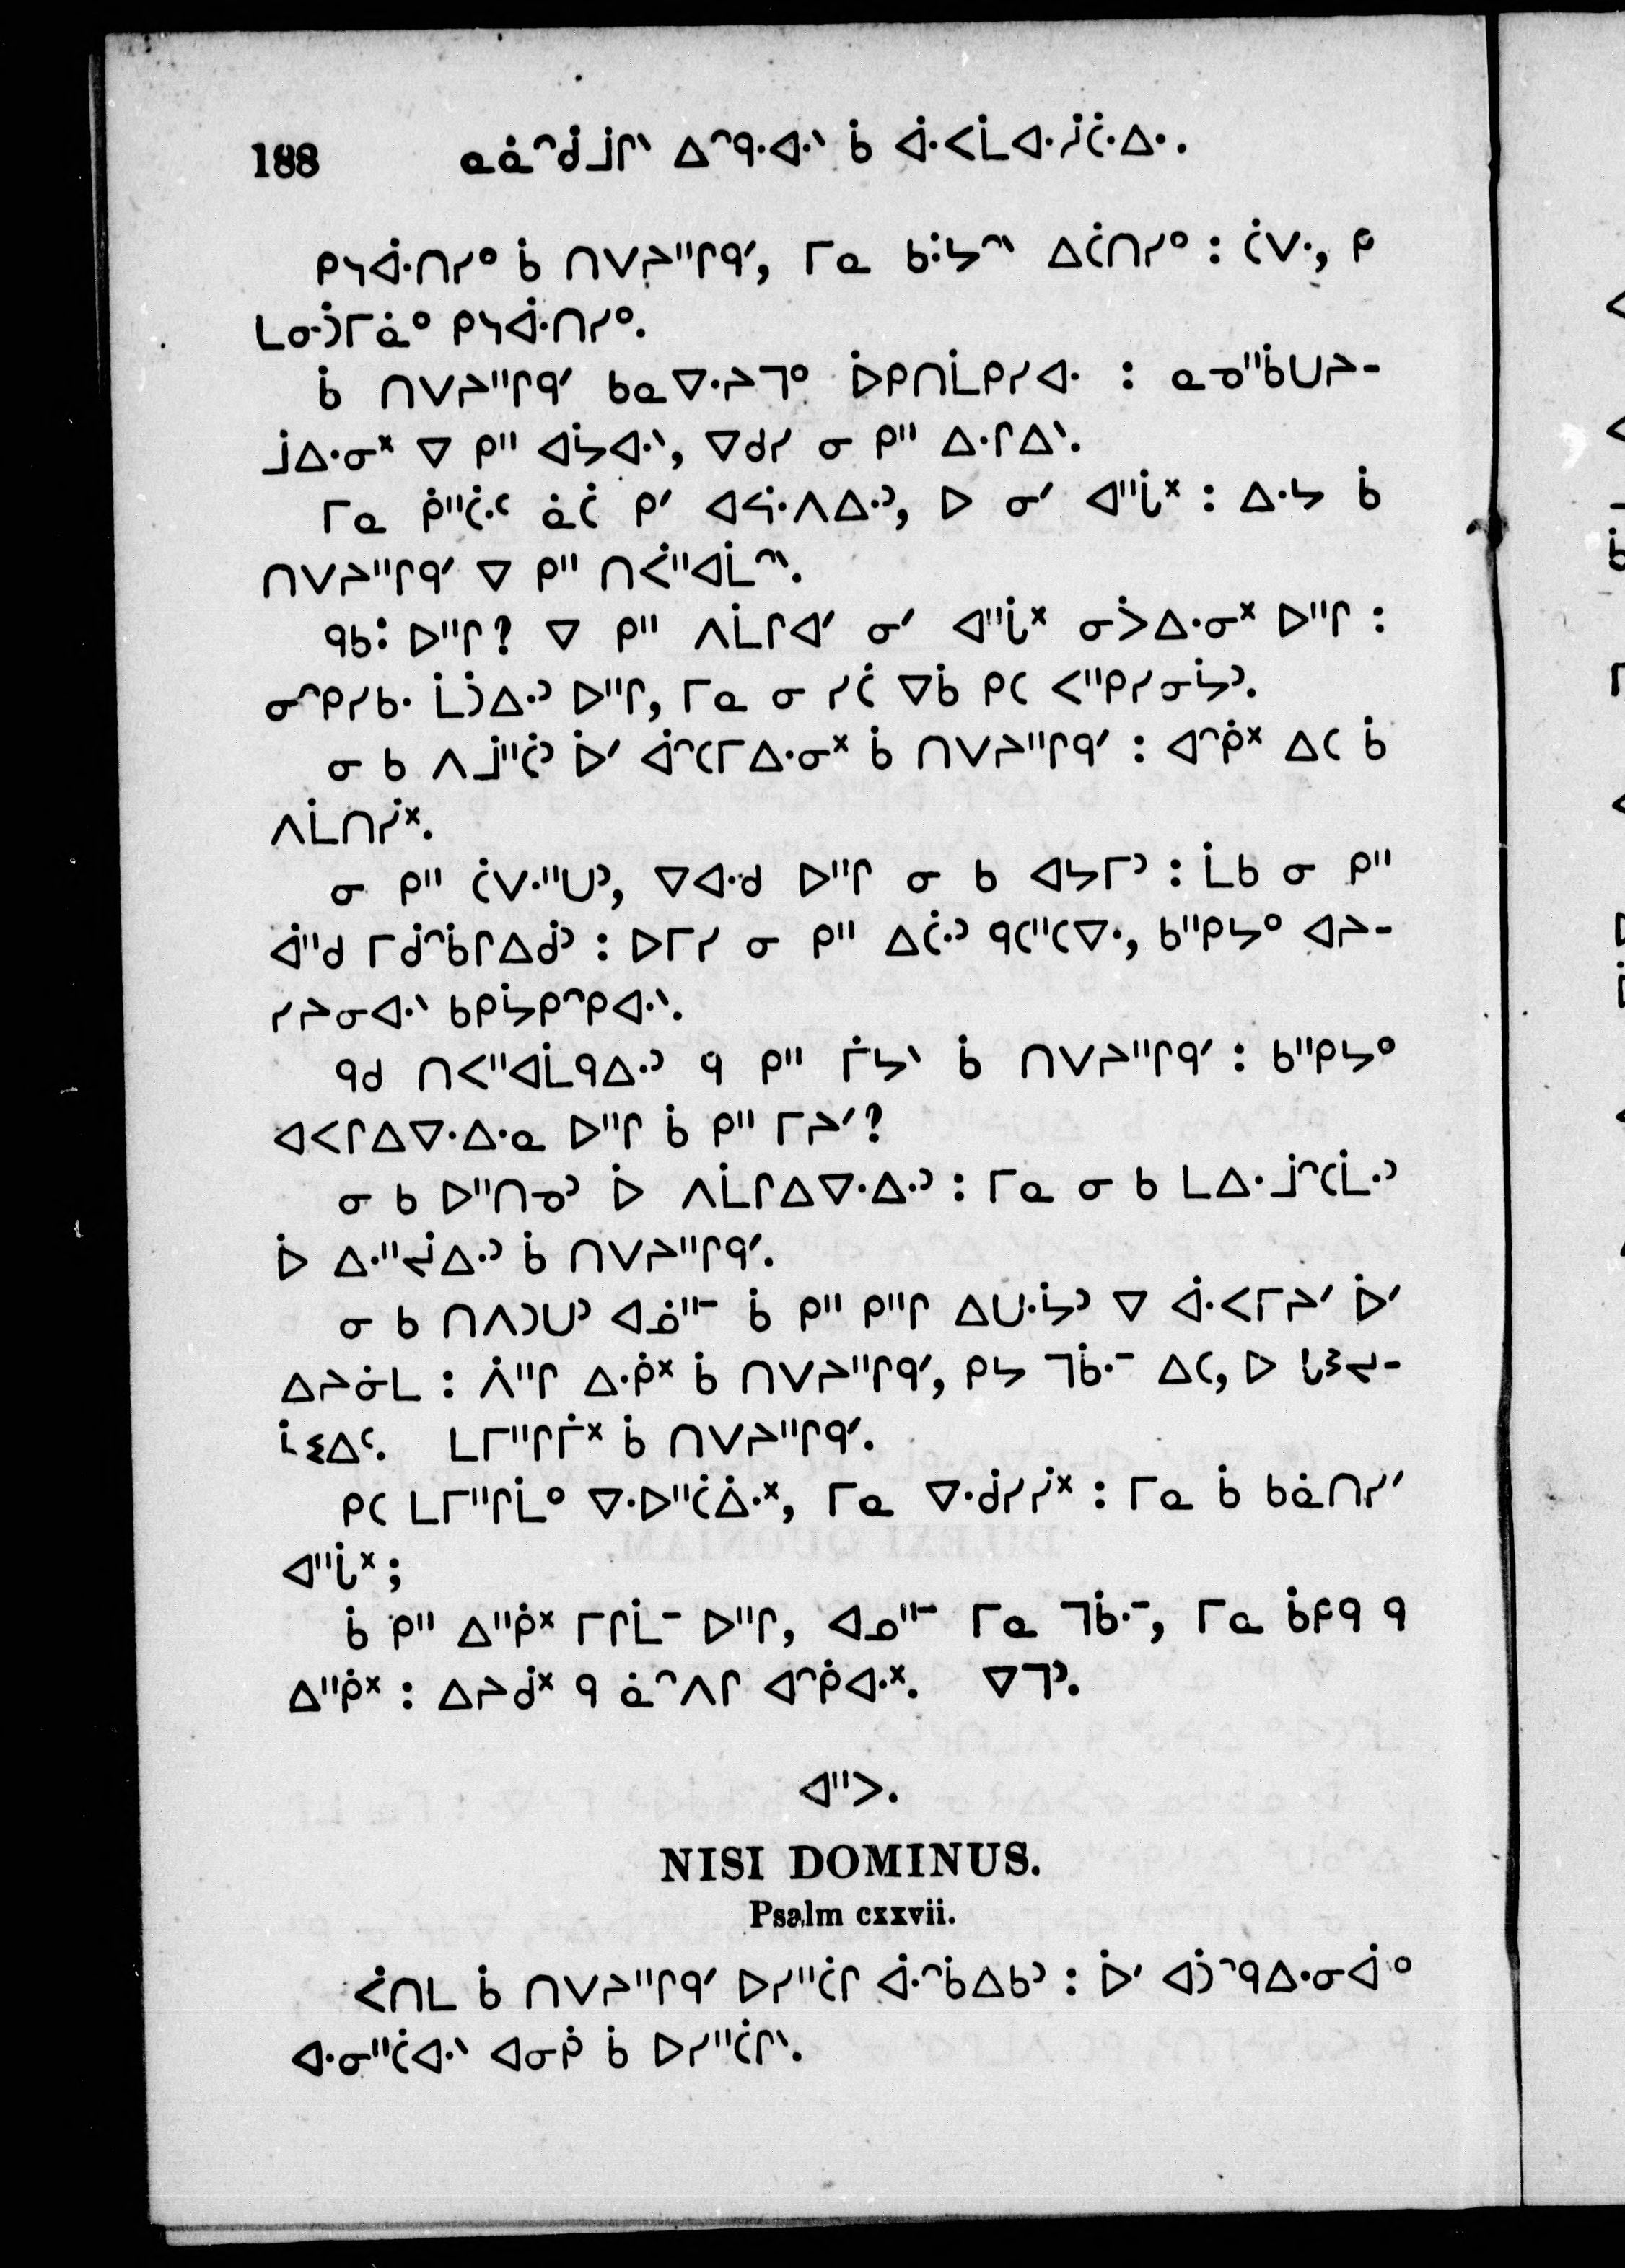 188 ᓇᓈᐢᑰᒨᒋᐠ ᐃᐢᑫᐧᐊᐧᐠ ᑳ ᐋᐧᐸᒫᐊᐧᓲᑖᐧᐃᐧ.
ᑭᓴᐋᐧᑎᓯᐤ ᑳ ᑎᐯᔨᐦᒋᑫᐟ, ᒥᓇ ᑲᐧᔭᐢᐠ ᐃᑖᑎᓯᐤ : ᑖᐯᐧ, ᑭ
ᒪᓂᑑᒥᓈᐤ ᑭᓴᐋᐧᑎᓯᐤ.
ᑳ ᑎᐯᔨᐦᒋᑫᐟ ᑲᓇᐁᐧᔨᒣᐤ ᐆᑭᑎᒫᑭᓯᐊᐧ : ᓇᓀᐦᑳᑌᔨ-
ᒨᐃᐧᓂᕽ ᐁ ᑭᐦ ᐊᔮᐊᐧᐠ, ᐁᑯᓯ ᓂ ᑭᐦ ᐃᐧᒋᐃᐠ.
ᒥᓇ ᑮᐦᑖᐧᑦ ᓈᑖ ᑭᐟ ᐊᔦᐧᐱᐃᐧᐣ, ᐅ ᓂᐟ ᐊᐦᒑᕽ : ᐃᐧᔭ ᑳ
ᑎᐯᔨᐦᒋᑫᐟ ᐁ ᑭᐦ ᑎᐹᐦᐊᒫᐢᐠ.
ᑫᑲᐧ ᐅᐦᒋ? ᐁ ᑭᐦ ᐱᒫᒋᐊᐟ ᓂᐟ ᐊᐦᒑᕽ ᓂᐴᐃᐧᓂᕽ ᐅᐦᒋ :
ᓂᐢᑭᓯᑲᐧ ᒫᑑᐃᐧᐣ ᐅᐦᒋ, ᒥᓇ ᓂ ᓯᑖ ᐁᑳ ᑭᑕ ᐸᐦᑭᓯᓂᔮᐣ.
ᓂ ᑲ ᐱᒨᐦᑖᐣ ᐆᐟ ᐋᐢᑕᒥᐃᐧᓂᕽ ᑳ ᑎᐯᔨᐦᒋᑫᐟ : ᐊᐢᑮᕽ ᐃᑕ ᑳ
ᐱᒫᑎᓰᕽ.
ᓂ ᑭᐦ ᑖᐯᐧᐦᑌᐣ, ᐁᐊᐧᑯ ᐅᐦᒋ ᓂ ᑲ ᐊᔭᒥᐣ : ᒫᑲ ᓂ ᑭᐦ
ᐋᐦᑯ ᒥᑰᐢᑳᒋᐃᑰᐣ : ᐅᒥᓯ ᓂ ᑭᐦ ᐃᑖᐧᐣ ᑫᑕᐦᑕᐁᐧ, ᑲᐦᑭᔭᐤ ᐊᔨ-
ᓯᔨᓂᐊᐧᐠ ᑲᑭᔮᑭᐢᑭᐊᐧᐠ.
ᑫᑯ ᑎᐸᐦᐊᒫᑫᐃᐧᐣ ᑫ ᑭᐦ ᒦᔭᐠ ᑳ ᑎᐯᔨᐦᒋᑫᐟ : ᑲᐦᑭᔭᐤ
ᐊᐸᒋᐃᐁᐧᐃᐧᓇ ᐅᐦᒋ ᑳ ᑭᐦ ᒥᔨᐟ?
ᓂ ᑲ ᐅᐦᑎᓀᐣ ᐆ ᐱᒫᒋᐃᐁᐧᐃᐧᐣ : ᒥᓇ ᓂ ᑲ ᒪᐃᐧᒨᐢᑕᒫᐧᐣ
ᐆ ᐃᐧᐦᔫᐃᐧᐣ ᑳ ᑎᐯᔨᐦᒋᑫᐟ.
ᓂ ᑲ ᑎᐱᑐᑌᐣ ᐊᓅᐦᐨ ᑳ ᑭᐦ ᑭᐦᒋ ᐃᑌᐧᔮᐣ ᐁ ᐋᐧᐸᒥᔨᐟ ᐆᐟ
ᐃᔨᓃᒪ : ᐲᐦᒋ ᐃᐧᑮᕽ ᑳ ᑎᐯᔨᐦᒋᑫᐟ, ᑭᔭ ᒣᑳᐧᐨ ᐃᑕ, ᐅ ᒐᕒᔪ-
ᓵᓬᐃᑦ. ᒪᒥᐦᒋᒦᕽ ᑳ ᑎᐯᔨᐦᒋᑫᐟ.
ᑭᑕ ᒪᒥᐦᒋᒫᐤ ᐁᐧᐅᐦᑖᐄᐧᕽ, ᒥᓇ ᐁᐧᑰᓯᓰᕽ : ᒥᓇ ᑳ ᑲᓈᑎᓯᐟ
ᐊᐦᒑᕽ ;
ᑳ ᑭᐦ ᐃᐦᑮᕽ ᒥᒋᒫᐨ ᐅᐦᒋ, ᐊᓄᐦᐨ ᒥᓇ ᒣᑳᐧᐨ, ᒥᓇ ᑳᑭᑫ ᑫ
ᐃᐦᑮᕽ : ᐃᔨᑰᕽ ᑫ ᓈᐢᐱᒋ ᐊᐢᑮᐊᐧᕽ. ᐁᒣᐣ.
ᐊᐦᐳ.
NISI DOMINUS.
Psalm cxxvii.
ᐹᑎᒪ ᑳ ᑎᐯᔨᐦᒋᑫᐟ ᐅᓯᐦᑖᒋ ᐋᐧᐢᑳᐃᑲᐣ : ᐆᐟ ᐊᑑᐢᑫᐃᐧᓂᐋᐤ
ᐊᐧᓂᐦᑖᐊᐧᐠ ᐊᓂᑮ ᑳ ᐅᓯᐦᑖᒋᐠ.